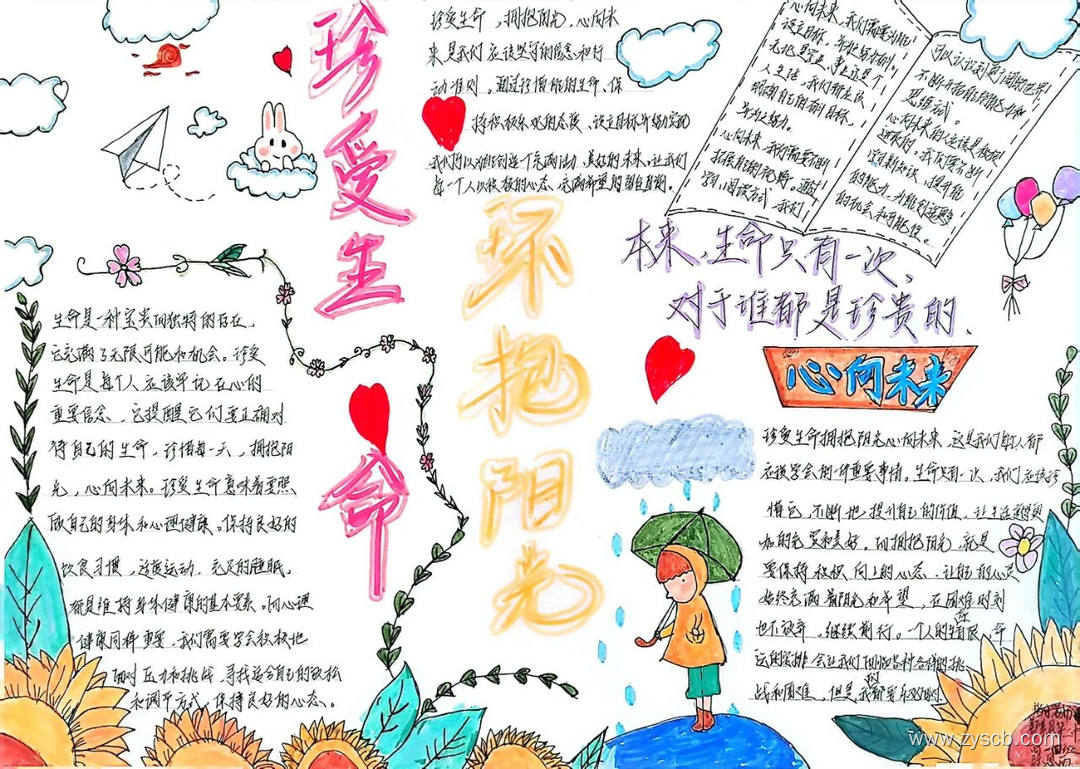 珍爱生命
环抱阳光
珍爱生命,拥抱阳光,心向未
来是我们应该坚守的信念和行
动准则。通过珍惜的生命、保
持积极乐观的态度、设立目标并努力实现
我们可以创造一个充满活力、美好的未来。让我们
每一个人以积极的心态、充满希望的
心向未来,我们需要
设立目标,并
无论是学业、事业还是个
人生活,我们都应该
明确自己的目标,
并为之努力。
心向未来,我们需要不断
拓展自己的视野。通过
学习、阅读方式,我们
可以认识到更广阔的世界
不断开拓自己的能力和
思维方式。
心向未来的人应该是积极
进取的。我们需不断
学习新知识、提升自己
的能力,才能创造更多
的机会和可能性。
本来,生命只有一次,
对于谁都是珍贵的.
心向未来
生命是一种宝贵而独特的存在,
它充满了无限可能和机会。珍爱
生命是每个人应该牢记在心的
重要信念,它提醒它们要正确对
待自己的生命,珍惜每一天,拥抱阳
光,心向未来。珍爱生命意味着要照
顾自己的身体和心理健康。保持良好的
饮食习惯,适度运动,充足的睡眠,
都是维持身体健康的基本要素。而心理
健康同样重要,我们需要学会积极地
面对压力和挑战,寻找适合自己的放松
和调节方式,保持良好的心态。
珍爱生命拥抱阳光心向未来,这是我们每人都
应该学会的一件重要事情。生命只有一次,我们应该珍
惜它,不断地提升自己的价值,让生活变得更
加的充实和美好。而拥抱阳光,就是
要保持积极向上的心态,让自己的心灵
始终充满着阳光和希望,在困难时刻
也不放弃,继续前行。一个人的生命有限,命
运的安排会让我们面临各种各样的挑
战和困难,但是我们都要乐观面对
www.zyscb.com